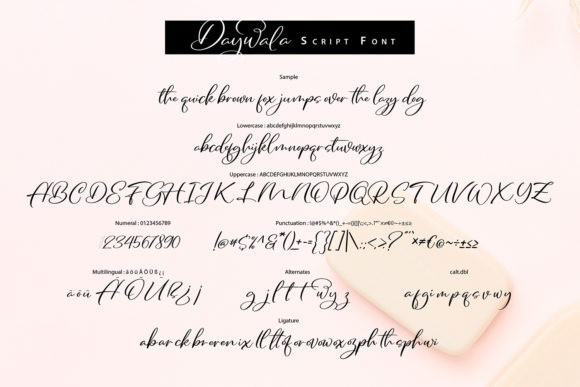 Daywala Script Font
Sample
the quick brown fox jumps over the lazy dog
Lowercase : abcdefghijklmnopqrstuvwxyz
abcdefghijklmnopqrstuvwxyz
Uppercase : ABCDEFGHIJKLMNOPQRSTUVWXYZ
ABCDEFGHIJKLMNOPQRSTUVWXYZ
Numeral : 0123456789
1234567890
Multilingual : ä ö ü Ä Ö Ü ß ¿ ¡
ä ö ü Ä Ö Ü ß ¿ ¡
Alternates
g j l t t w y z
calt.dbl
a f g i m p q s v w y
Ligature